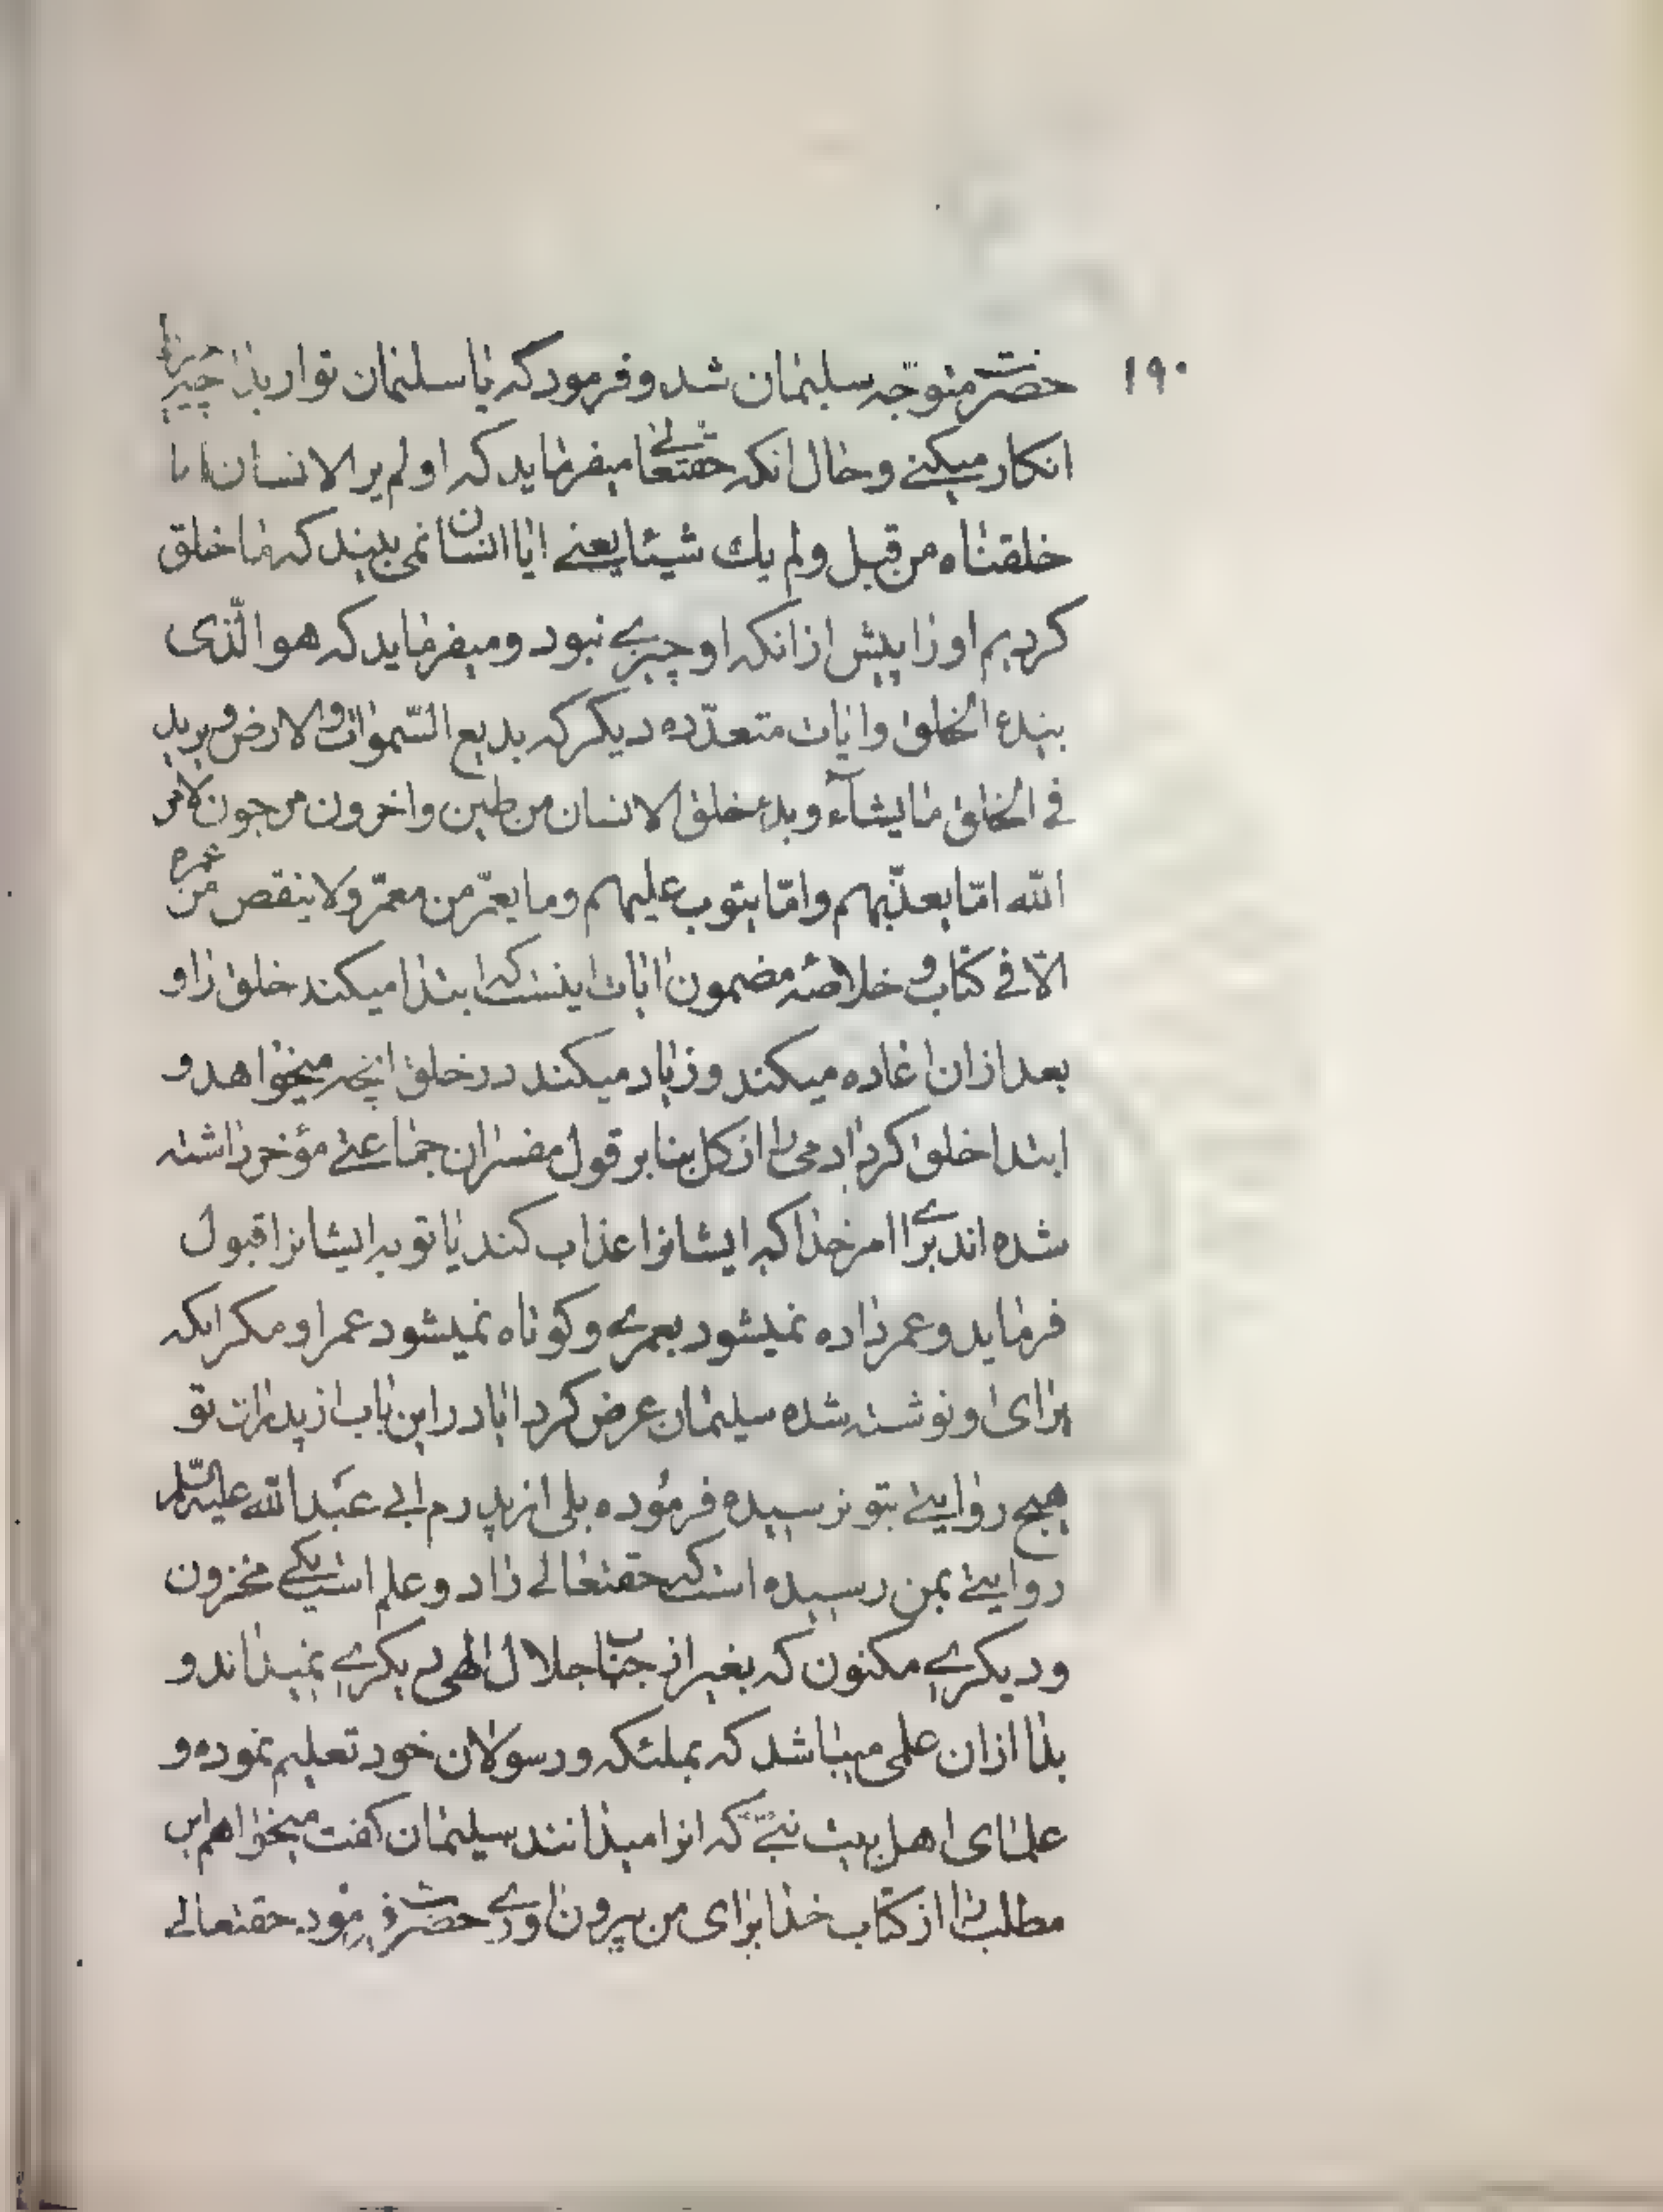 ۱۹۰
حضرت متوجّه سلیمان شد و فرمود که یا سلیمان تو از بدا چه چیز را
انکار میکنے و حال انکه حقتعالے میفرماید که اولم یر الانسان انا
خلقناه من قبل ولم یك شیئا یعنے ایا انسان نمی بیند که ما خلق
کردیم او را پیش از انکه او چیزے نبود و میفرماید که هو الّذی
یبدء الخلق و ایات متعدّده دیکر که بدیع السّموات والارض و یزید
فے الخلق ما یشآء و بدء خلق الانسان من طین واخرون مرجون لامر
الله امّا یعذّبهم وامّا یتوب علیهم وما یعمّر من معمّر ولا ینقص من عمره
الّا فے کتاب و خلاصۀ مضمون ایات اینست که ابتدا میکند خلق را و
بعد از ان اعاده میکند و زیاد میکند در خلق انچه میخواهد و
ابتدا خلق کرد ادمی را از کل بنابر قول مفسران جماعتے مؤخر داشته
شده اند براے امر خدا که ایشانرا عذاب کند یا توبه ایشانرا قبول
فرماید و عمر داده نمیشود بعمرے و کوتاه نمیشود عمر او مکر انکه
برای او نوشته شده سلیمان عرض کرد ایا در این باب از پدران تو
هیچ روایتے بتو نرسیده فرموده بلی از پدرم ابے عبد الله علیه السّلم
روایتے بمن رسیده است که حقتعالے را دو علم است یکے مخزون
و دیکرے مکنون که بغیر از جناب جلال الهی دیکرے نمیداند و
بدا از ان علمی میباشد که بملئکه و رسولان خود تعلیم نموده و
علمای اهل بیت نبےّ که انرا میدانند سلیمان کفت میخواهم این
مطلب را از کتاب خدا برای من بیرون اورے حضرت فرمود حقتعالے